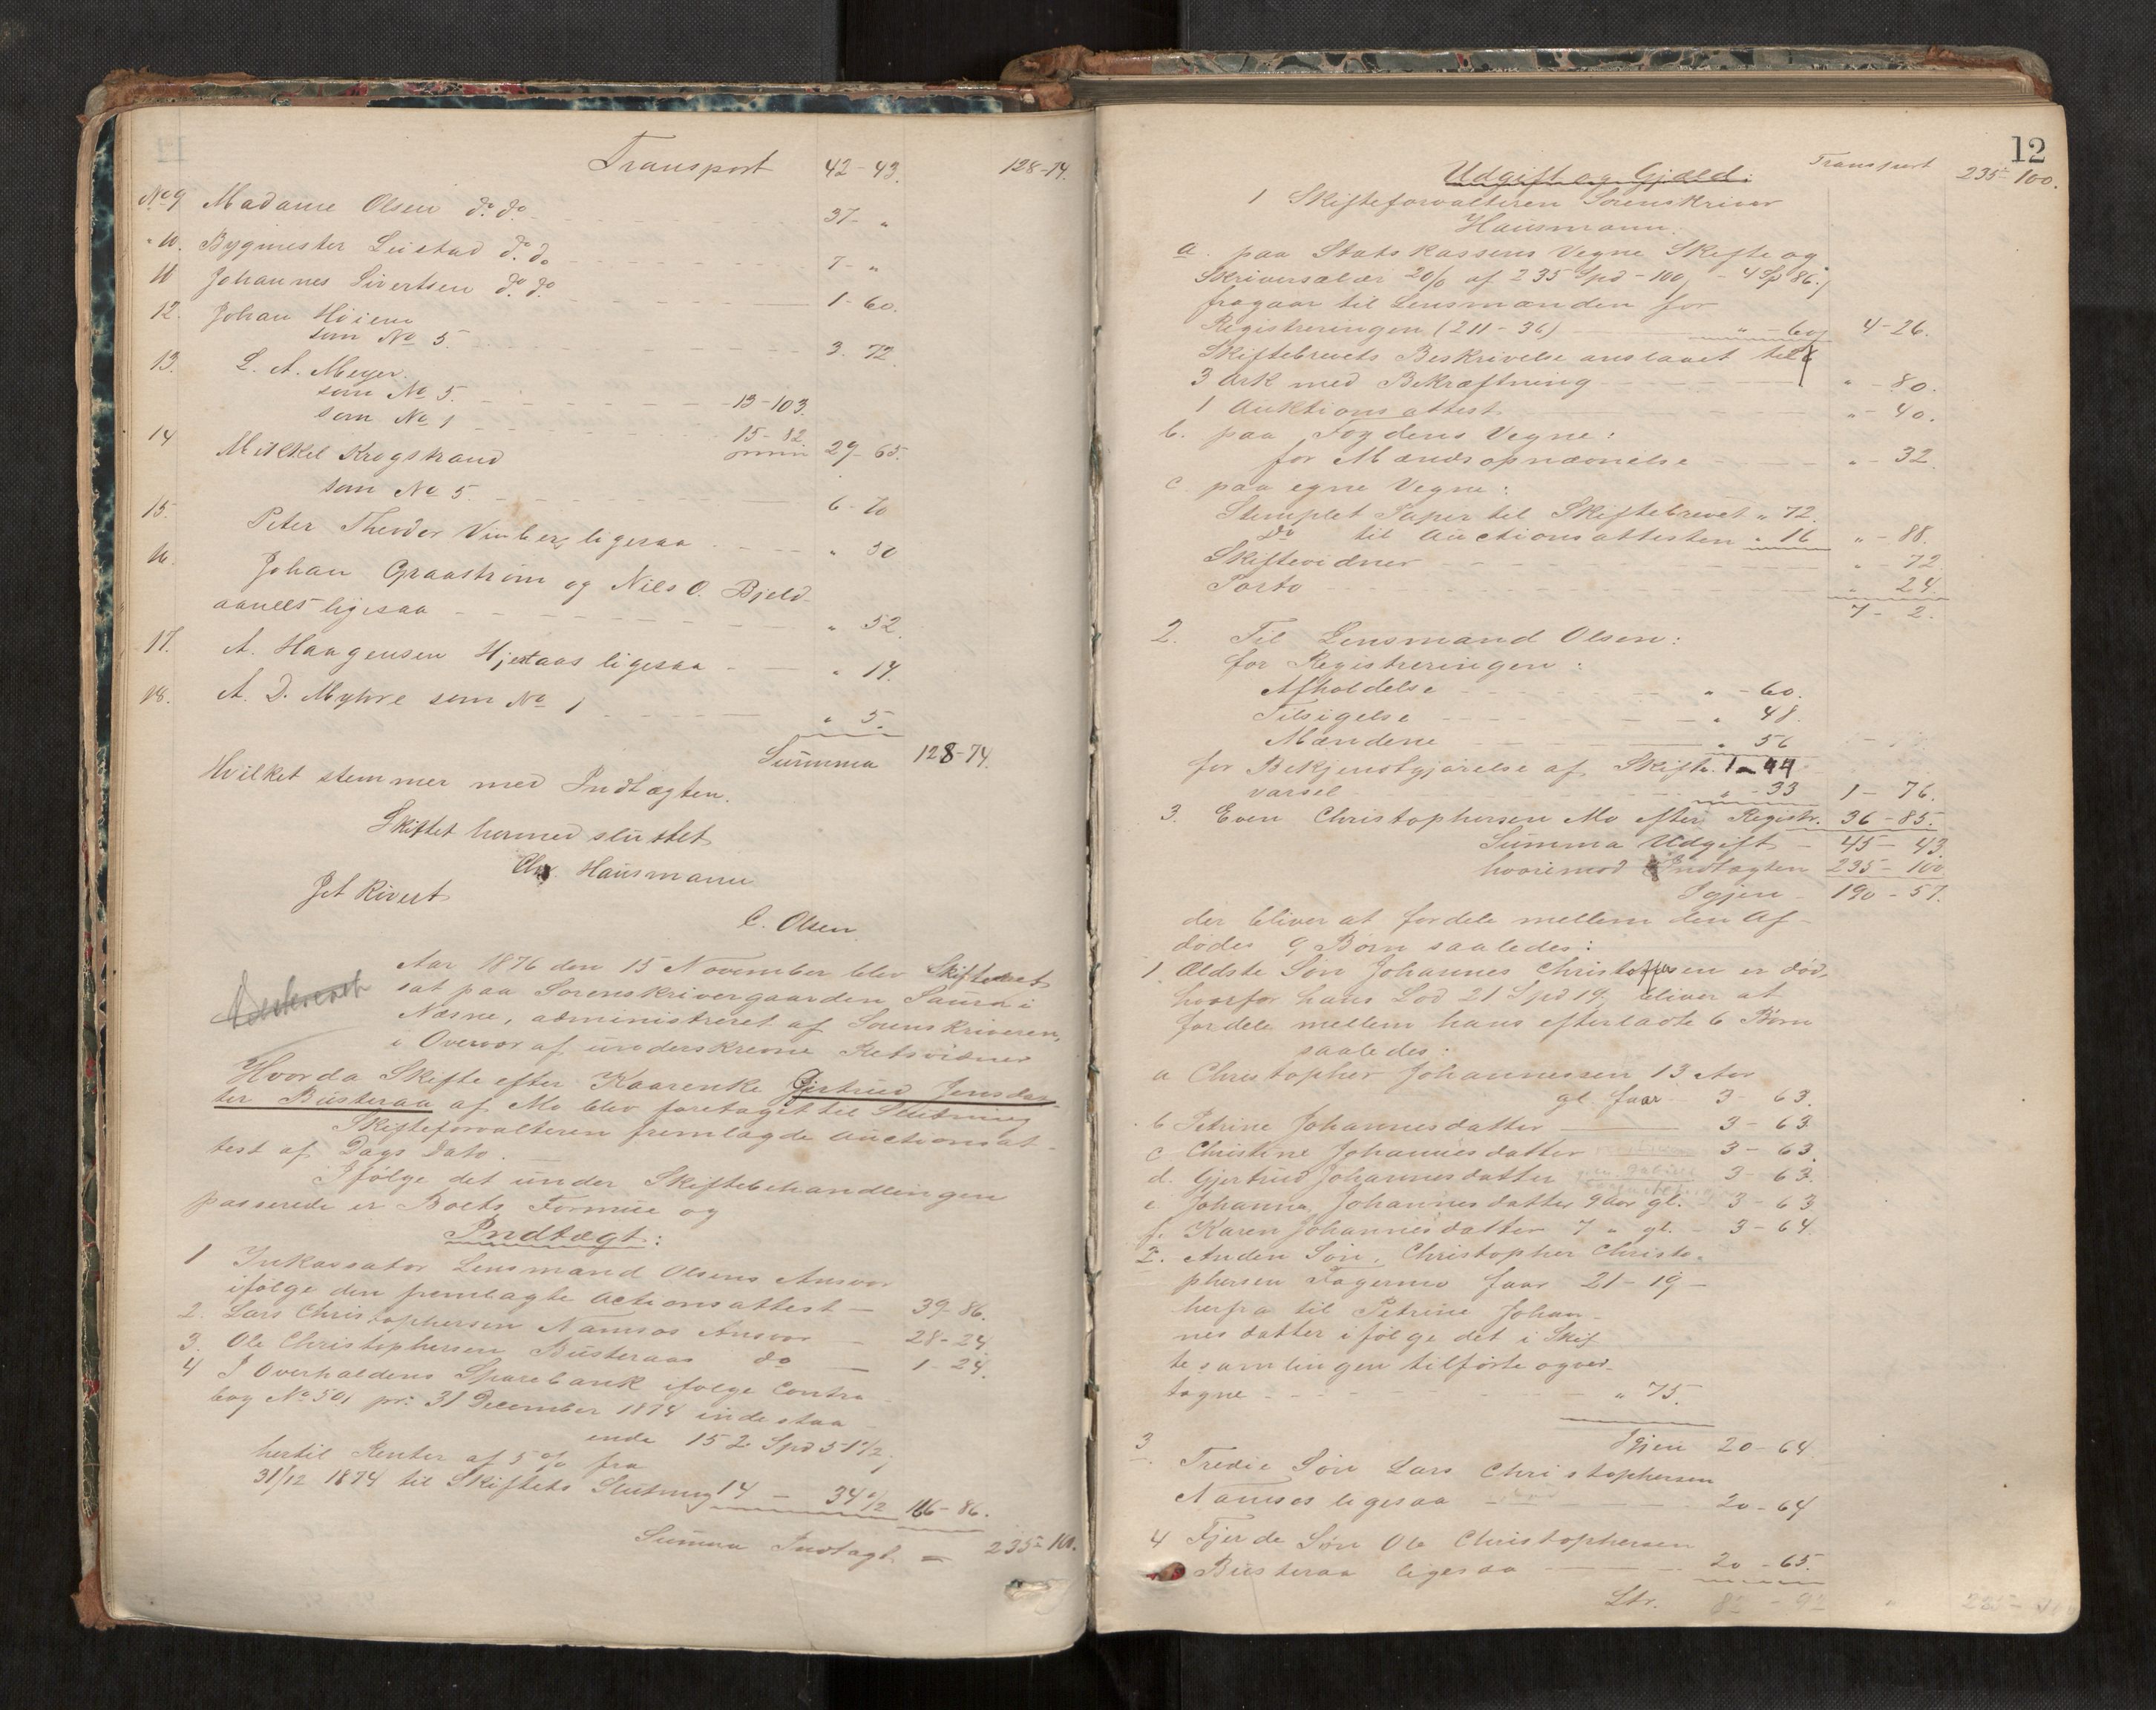 Transport 42-43. 128-74.
No 9 Madame Olsen do do 37- "
" 10. Bygmester Leistad do do 7- "
11 Johannes Sivertsen do do 1-60.
12. Johan Höiem
som No 5. 3. 72
13. L. A. Meyer.
som No 5. 13-103.
som No 1 15-82. 29-65.
14 Mikkel Krogstrand
som No 5. 6-70
15. Peter Theodor Vinberg ligesaa " 50
16. Johan Graaström og Nils O. Bjeld-
aanes ligesaa " 52.
17. A. Haagensen Hjestaas ligesaa " 14.
18. A. D. Myhre som No 1 " 5.
Summa 128-74.
Hvilket stemmer med Indtægten.
Skiftet hermed sluttet
Chr. Hausmann
Jet Rivert
C. Olsen
Aar 1876 den 15 November blev Skifteret
sat paa Sorenskrivergaarden Saura i
Næsne, administreret af Sorenskriveren,
i Overvær af underskrevne Retsvidner
Hvorda Skifte efter Kaarenke Gjertrud Jensdat-
ter Büsteraa af Mo blev foretaget til Slutning
Skifteforvalteren fremlagde Auctionsat-
test af Dags Dato.
Ifølge det under Skiftebehandlingen
passerede er Boets Formue og
Indtægt:
1 Inkassator Lensmand Olsens Ansvar
ifølge den fremlagte Actionsattest - 39-86.
2. Lars Christophersen Namsos Ansvar - 28-24.
3. Ole Christophersen Büsteraas do - 1-24.
4 I Overhaldens Sparebank ifølge Contra-
bog No 501 pr: 31 December 1874 indestaa-
ende 152 Spd 51 1/2
hertil Renter af 5 % fra
31/12 1874 til Skiftets Slutning 14 - 34 1/2 166-86.
Summa Indtægt = 235-100.
12
Transport 235-100.
Udgift og Gjæld:
1 Skifteforvalteren Sorenskriver
Hausmann.
a. paa Statskassens Vegne Skifte og
Skriversalær 2 0/0 af 235 Spd-100 - 4 Sp 86.
fragaar til Lensmanden for
Registreringen (211-36) " - 60 4-26.
Skiftebrevets Beskrivelse anslaaet til
3 Ark med Bekræftning " - 80.
1 Auktionsattest " - 40.
b. paa Fogdens Vegne:
for Mændsopnævnelse " - 32.
c. paa egne Vegne:
Stemplet Papir til Skiftebrevet " 72.
do til Auctionsattesten " 16 " - 88.
Skiftevidner " - 72.
Porto " 24.
7 - 2.
2. Til Lensmand Olsen:
for Registreringen:
Afholdelse " - 60.
Tilsigelse " 48.
Mændene " 56
for Bekjendtgjørelse af Skifte- 1-44
varsel " - 33 1 - 76.
3. Even Christophersen Mo efter Registr. 36-85.
Summa Udgift - 45-43
hvorimod Indtægten 235-100
Igjen 190-57.
der bliver at fordele mellem den Af-
dødes 9 Børn saaledes:
1. Ældste Søn Johannes Christoffersen er død,
hvorfor hans Lod 21 Spd 19 bliver at
fordele mellem hans efterladte 6 Børn
saaledes:
a Christopher Johannessen 13 Aar
gl. faar 3- 63.
b Petrine Johannesdatter 3- 63
c Christine Johannesdatter 3- 63.
d. Gjertrud Johannesdatter 3- 63.
e Johanna Johannesdatter 9 Aar gl. - 3 - 63
f. Karen Johannesdatter 7 " gl. - 3- 64.
2. Anden Søn, Christopher Christo-
phersen Fagermo faar 21-19-
herfra til Petrine Johan-
nesdatter ifølge det i Skif-
tesamlingen tilførte og ved-
tagne " 75.
Igjen 20-64
3. Tredie Søn Lars Christophersen
Namsos ligesaa 20-64
4 Fjerde Søn Ole Christophersen
Büsteraa ligesaa 20-65.
Ltr. 82 - 92